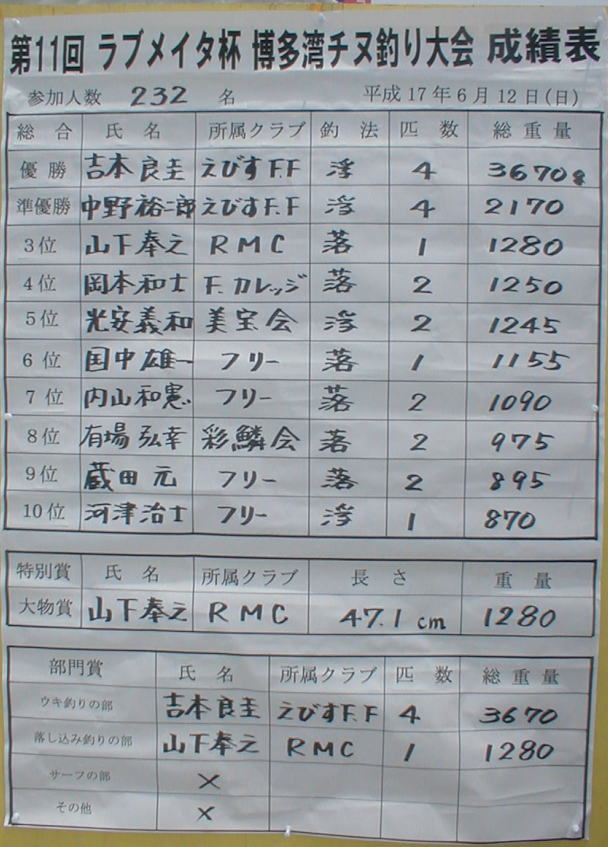 第11回 ラブメイタ杯 博多湾チヌ釣り大会 成績表
参加人数 232 名 平成17年6月12日(日)
総合 氏名 所属クラブ 釣法 匹数 総重量
優勝 吉本良圭 えびすF.F 浮 4 3670g
準優勝 中野裕二郎 えびすF.F 浮 4 2170
3位 山下奉之 RMC 落 1 1280
4位 岡本和士 F.カレッジ 落 2 1250
5位 光安義和 美宝会 浮 2 1245
6位 国中雄一 フリー 落 1 1155
7位 内山和憲 フリー 落 2 1090
8位 有場弘幸 彩鱗会 落 2 975
9位 蔵田元 フリー 落 2 895
10位 河津治士 フリー 浮 1 870
特別賞 氏名 所属クラブ 長さ 重量
大物賞 山下奉之 RMC 47.1cm 1280
部門賞 氏名 所属クラブ 匹数 総重量
ウキ釣りの部 吉本良圭 えびすF.F 4 3670
落し込み釣りの部 山下奉之 RMC 1 1280
サーフの部 ×
その他 ×